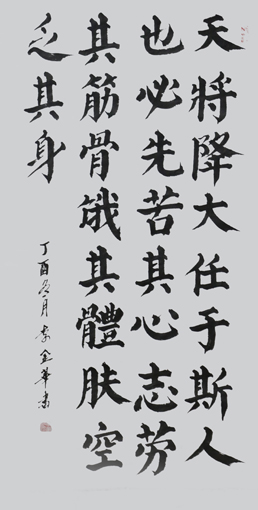 天将降大任于斯人
也必先苦其心志劳
其筋骨饿其體肤空
乏其身
丁酉冬月李金華書